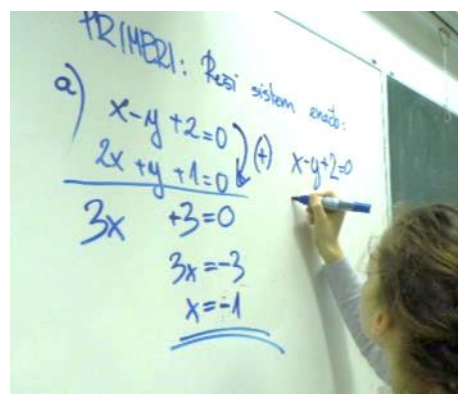 PRIMERI: Reši sistem enačb:
a) x-y+2=0
2x+y+1=0 (+)
3x +3=0
3x=-3
x=-1
x-y+2=0